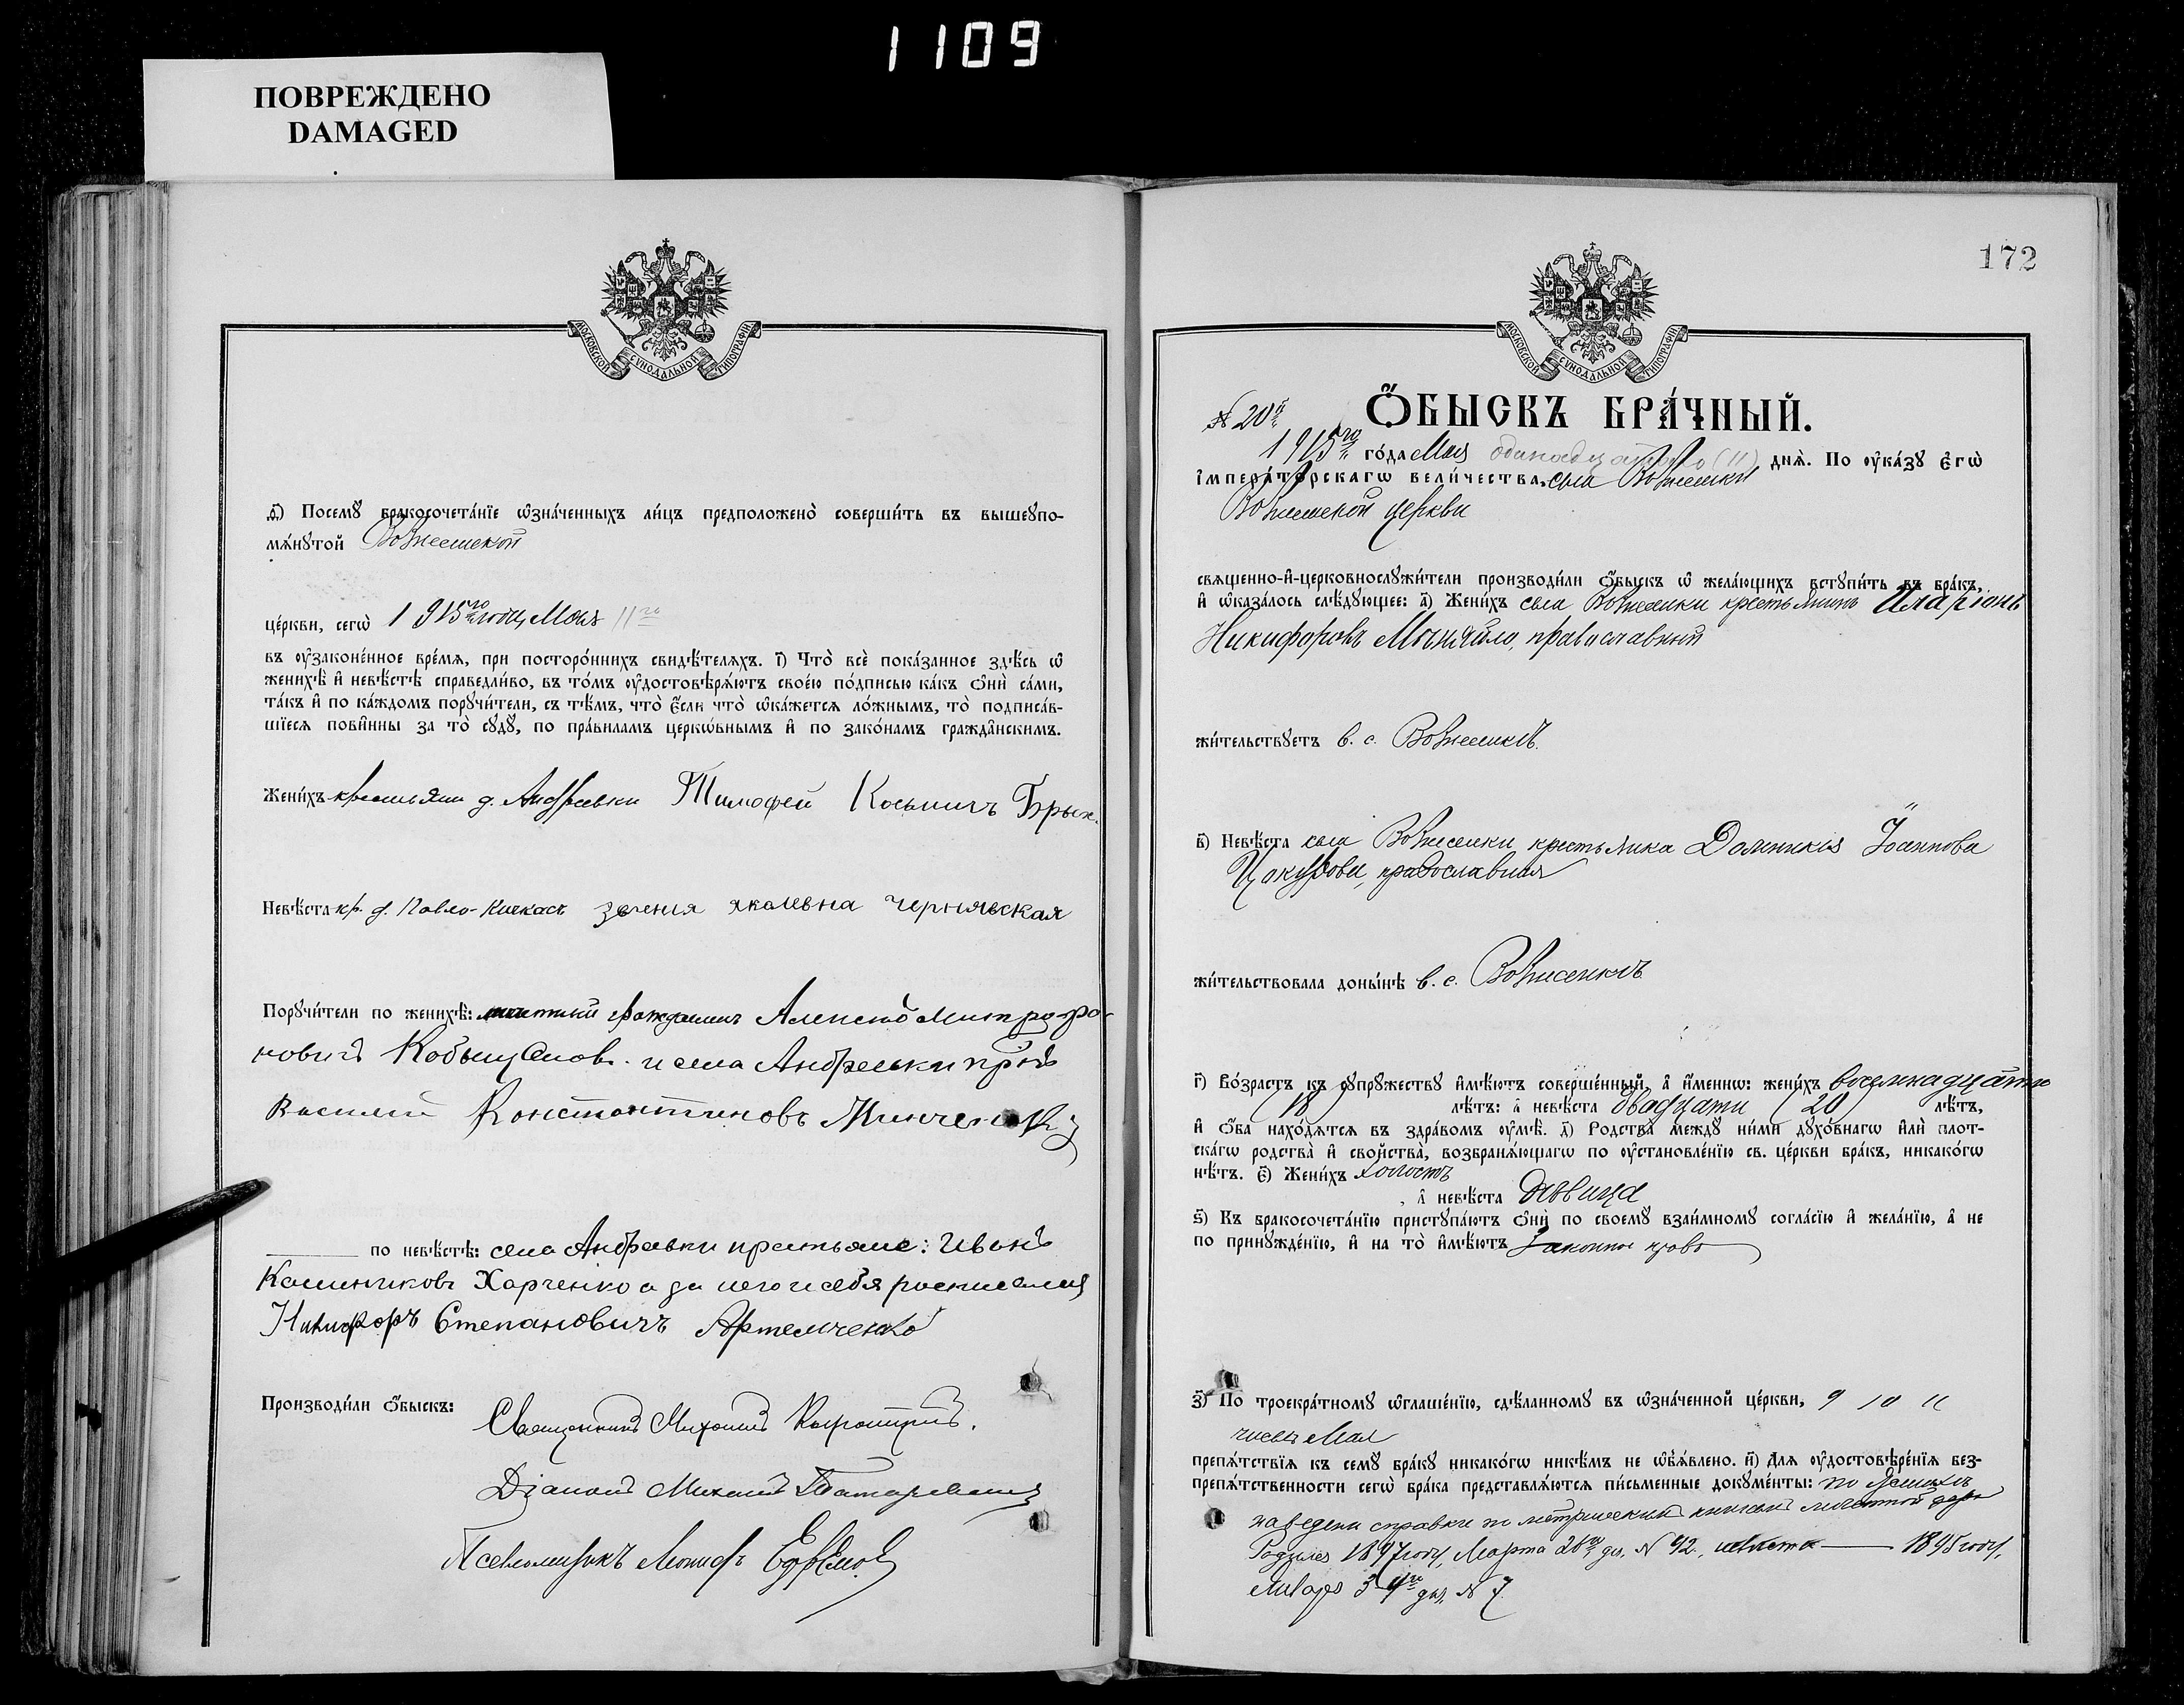 1109
ПОВРЕЖДЕНО
DAMAGED
МОСКОВСКОЙ СѴНОДАЛЬНОЙ ТИПОГРАФІИ
ѳ҃) Посемꙋ̀ бракосочета́нїе ѡ҆зна́ченныхъ ли́цъ предположено̀ соверши́ть въ вышеꙋпо-
мѧ́нꙋтой Вознесенской
це́ркви, сегѡ̀ 1915го года, Мая 11го
въ ᲂу҆законе́нное вре́мѧ, при посторо́ннихъ свидѣ́телѧхъ. і҃) Что̀ всѐ пока́занное здѣ́сь ѡ҆
женихѣ̀ и҆ невѣ́стѣ справедли́во, въ то́мъ ᲂу҆достовѣрѧ́ютъ свое́ю по́дписью ка́къ ѻ҆нѝ са́ми,
та́къ и҆ по ка́ждомъ порꙋчи́тели, съ тѣ́мъ, что̀ є҆́сли что̀ ѡ҆ка́жетсѧ ло́жнымъ, то̀ подписа́в-
шїесѧ пови́нны за то̀ сꙋдꙋ̀, по пра́виламъ церко́внымъ и҆ по зако́намъ гражда̑нскимъ.
Жени́хъ крестьянин д. Андреевки Тимофей Косьмичъ Брык.
Невѣ́ста кр. д. Павло-Кичкасъ Яколевна Чернявская
Порꙋчи́тели по женихѣ̀: Алексей Митрофа-
новичъ и села Андреевки
Василий Константиновъ Минченко
по невѣ́стѣ: села Андреевки крестьяне: Иванъ
Калиниковъ Харченко а за него и себя росписался
Никифоръ Степановичъ Артемченко
Производи́ли ѻ҆́быскъ:
Священникъ Михаилъ
Діаконъ Михаилъ
Псаломщикъ Ефремов
172
МОСКОВСКОЙ СѴНОДАЛЬНОЙ ТИПОГРАФІИ
№ 20й Ѻ҆́БЫСКЪ БРА́ЧНЫЙ.
1915го го́да Мая одинадцатого (11) днѧ̀. По ᲂу҆ка́зꙋ є҆гѡ̀
і҆мпера́торскагѡ вели́чества, села Вознесенки
Вознесенской церкви
свѧще́нно-и҆-церковнослꙋжи́тели производи́ли ѻ҆́быскъ ѡ҆ жела́ющихъ встꙋпи́ть въ бра́къ,
и҆ ѡ҆каза́лось слѣ́дꙋющее: а҃) Жени́хъ села Вознесенки крестьянинъ Иларіонъ
Никифоровъ Момчило, православный
жи́тельствꙋетъ в. с. Вознесенкѣ.
в҃) Невѣ́ста села Вознесенки крестьянка Домникія Іоаннова
Цокурова, православная
жи́тельствовала доны́нѣ в. с. Вознесенкѣ
г҃) Во́зрастъ къ сꙋпрꙋ́жествꙋ и҆мѣ́ютъ соверше́нный, а҆ и҆́меннѡ: жени́хъ восемнадцати
(18) лѣ́тъ: а҆ невѣ́ста двадцати (20) лѣ́тъ,
и҆ ѻ҆́ба нахо́дѧтсѧ въ здра́вомъ ᲂу҆мѣ̀. д҃) Родства̀ междꙋ̀ ни́ми дꙋхо́внагѡ и҆лѝ плот-
ска́гѡ родства̀ и҆ сво́йства̀, возбранѧ́ющагѡ по ᲂу҆становле́нїю св. це́ркви бра́къ, никако́гѡ
нѣ́тъ. є҃) Жени́хъ холостъ
, а҆ невѣ́ста дѣвица
ѕ҃) Къ бракосочета́нїю пристꙋпа́ютъ ѻ҆нѝ по своемꙋ̀ взаи́мномꙋ согла́сїю и҆ жела́нїю, а҆ не
по принꙋжде́нїю, и҆ на то̀ и҆мѣ́ютъ законное право
з҃) По троекра́тномꙋ ѡ҆глаше́нїю, сдѣ́ланномꙋ въ ѡ҆зна́ченной це́ркви, 9 10 11
числъ Мая
препѧ́тствїѧ къ семꙋ̀ бра́кꙋ никако́гѡ никѣ́мъ не ѡ҆б̾ѧ́влено. и҃) Для ᲂу҆достовѣре́нїѧ без-
препѧ́тственности сегѡ̀ бра́ка представлѧ́ютсѧ пи́сьменные докꙋме́нты: по
наведены справки по метрическим книгам местной церк
Родился 1897 году, Марта 26го дн. № 92, невѣста — 1895 году,
Января 3 дн. № 7.